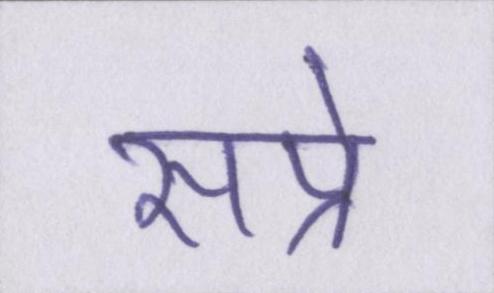 सप्रे